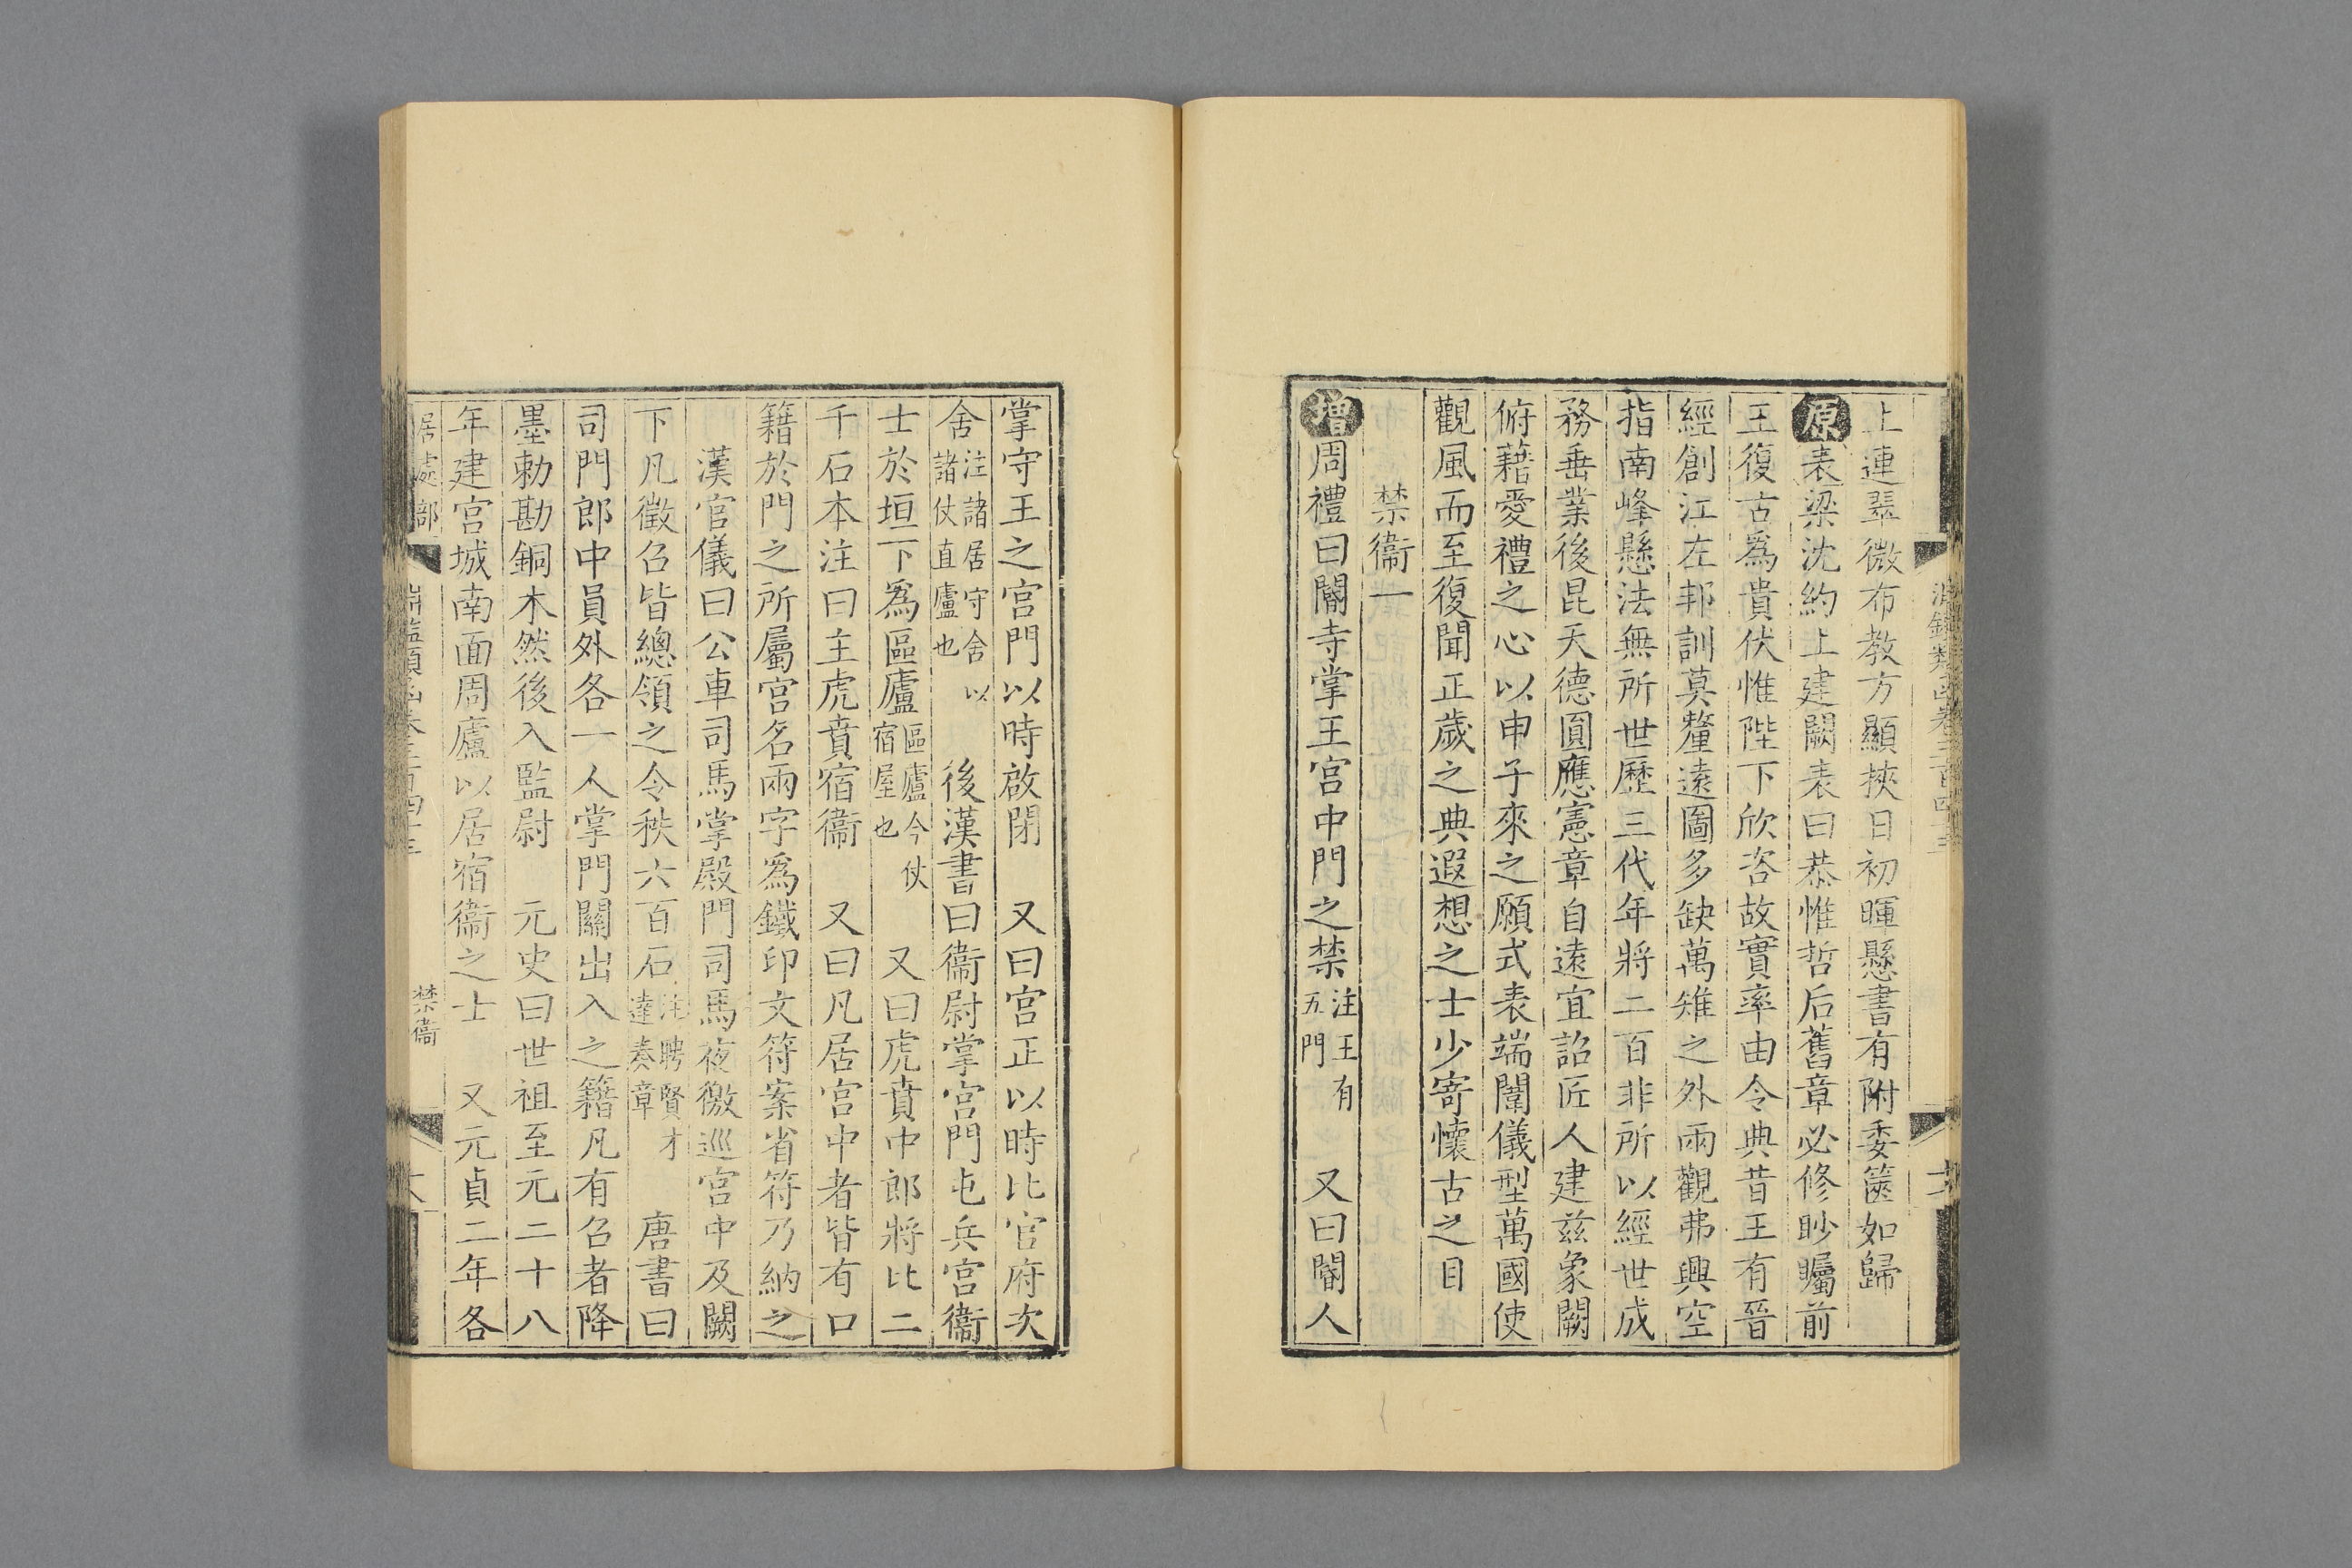 上連翠微布教方顯挾日初暉懸書有附委篋如歸
原表梁沈約上建闕表曰恭惟哲后舊章必修眇矚前
王復古爲貴伏惟陛下欣咨故實率由令典昔王有晉
經創江左邦訓莫釐遠圖多缺萬雉之外兩觀弗興空
指南峰懸法無所世歷三代年將二百非所以經世成
務垂業後昆天德圓應憲章自遠宜詔匠人建兹象闕
俯藉愛禮之心以申子來之願式表端闈儀型萬國使
觀風而至復聞正歲之典遐想之士少寄懷古之目
禁衞一
增周禮曰閽寺掌王宫中門之禁注王有五門 又曰閽人
掌守王之宫門以時啟閉 又曰宫正以時比官府次
舍注諸居守舍以諸仗直廬也 後漢書曰衞尉掌宫門屯兵宫衞
士於垣下爲區廬區廬今仗宿屋也 又曰虎賁中郎將比二
千石本注曰主虎賁宿衞 又曰凡居宫中者皆有口
籍於門之所屬宫名兩字爲鐵印文符案省符乃納之
漢官儀曰公車司馬掌殿門司馬夜徼巡宫中及闕
下凡徵召皆總領之令秩六百石注聘賢才達奏章 唐書曰
司門郎中員外各一人掌門關出入之籍凡有召者降
墨勅勘銅木然後入監尉 元史曰世祖至元二十八
年建宫城南面周廬以居宿衞之士 又元貞二年各
居處部 禁衞